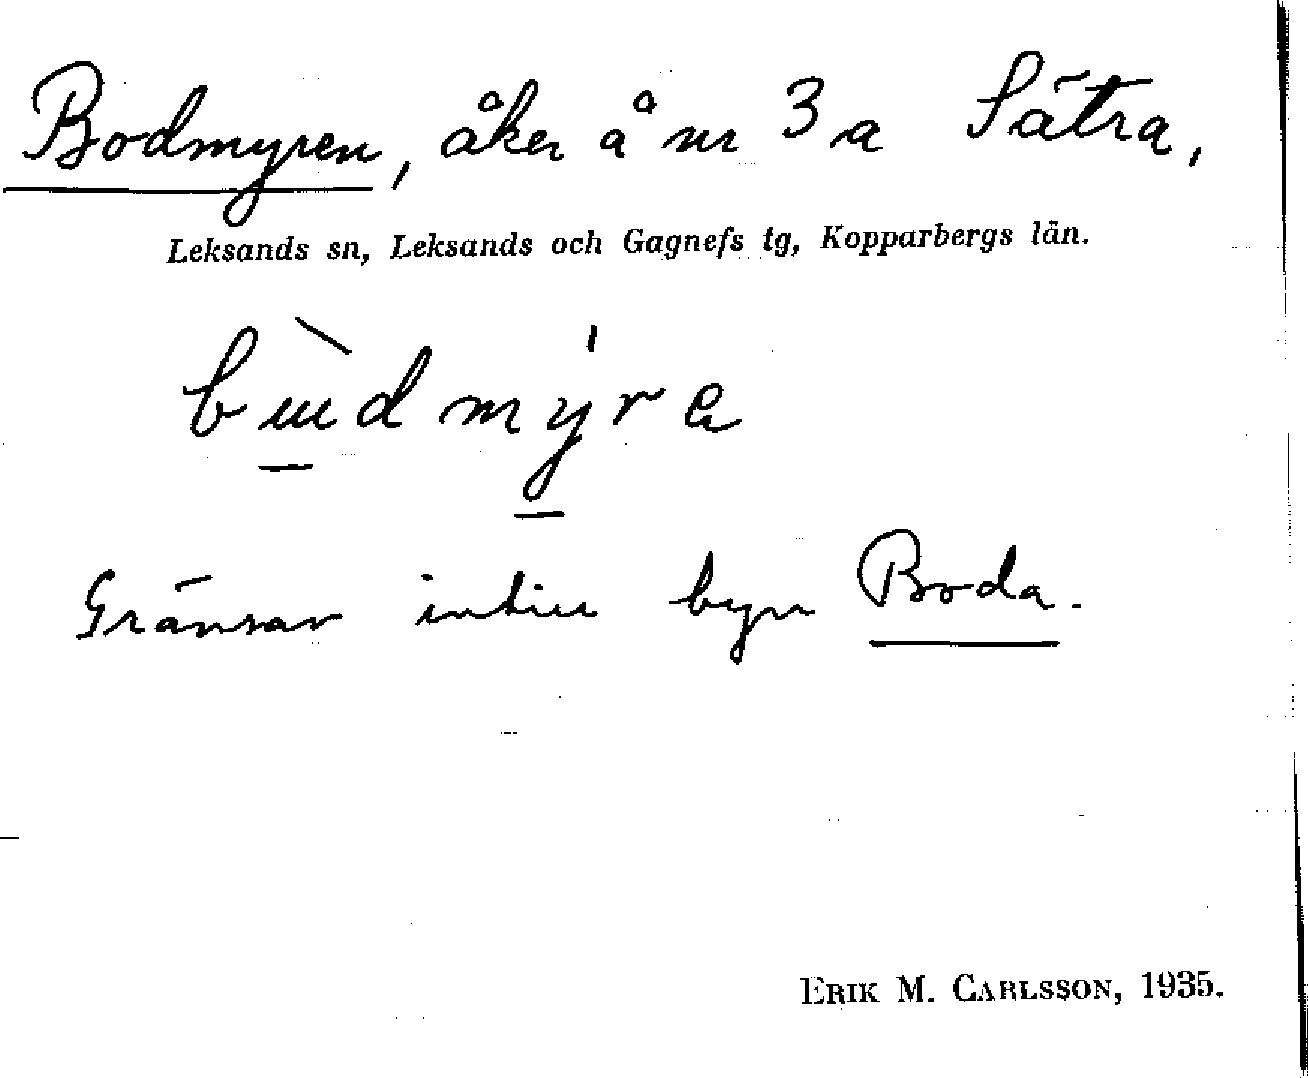 Bodmyren, åker å nr 3a Sätra,
Leksands sn, Leksands och Gagnefs tg, Kopparbergs län.
Gränsar intill byn Boda.
ERIK M. CARLSSON, 1935.